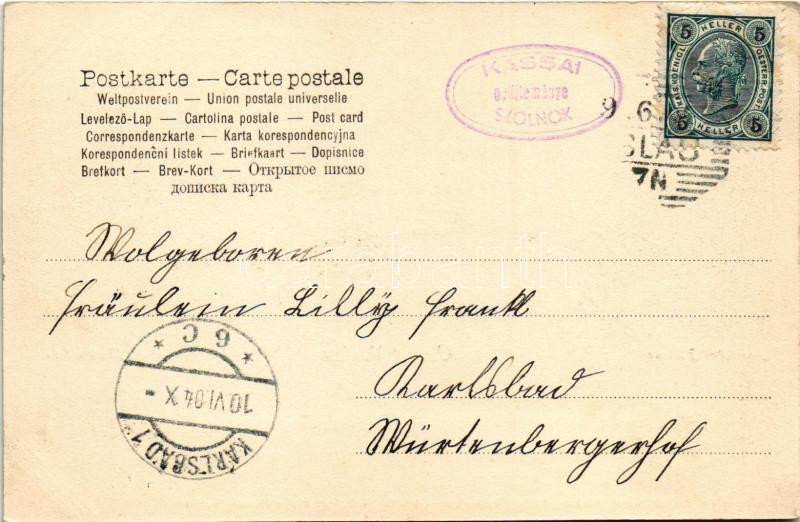 Postkarte — Carte postale
Weltpostverein — Union postale universelle
Levelező-Lap — Cartolina postale — Post card
Correspondenzkarte — Karta korespondencyjna
Korespondenčni listek — Briefkaart — Dopisnice
Brefkort — Brev-Kort — Открытое писмо
дописка карта
KASSAI
gyűjteménye
SZOLNOK
5 HELLER 5
KAIS. KOENIGL. OESTERR. POST
5 HELLER 5
9 6
SLAU
7N
Wolgeboren
Fräulein Lilly Frankl
Karlsbad
Würtenbergerhof
* 6 C *
10 VI 04 X -
KARLSBAD 1
darabanth